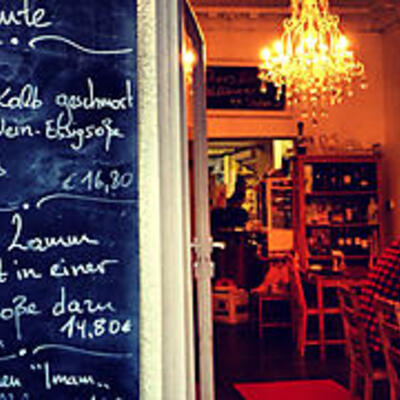 ute
Kalb geschmort
Wein-Essigsoße
€ 16,80
Lamm
t in einer
oße dazu
14.80€
en "Imam..